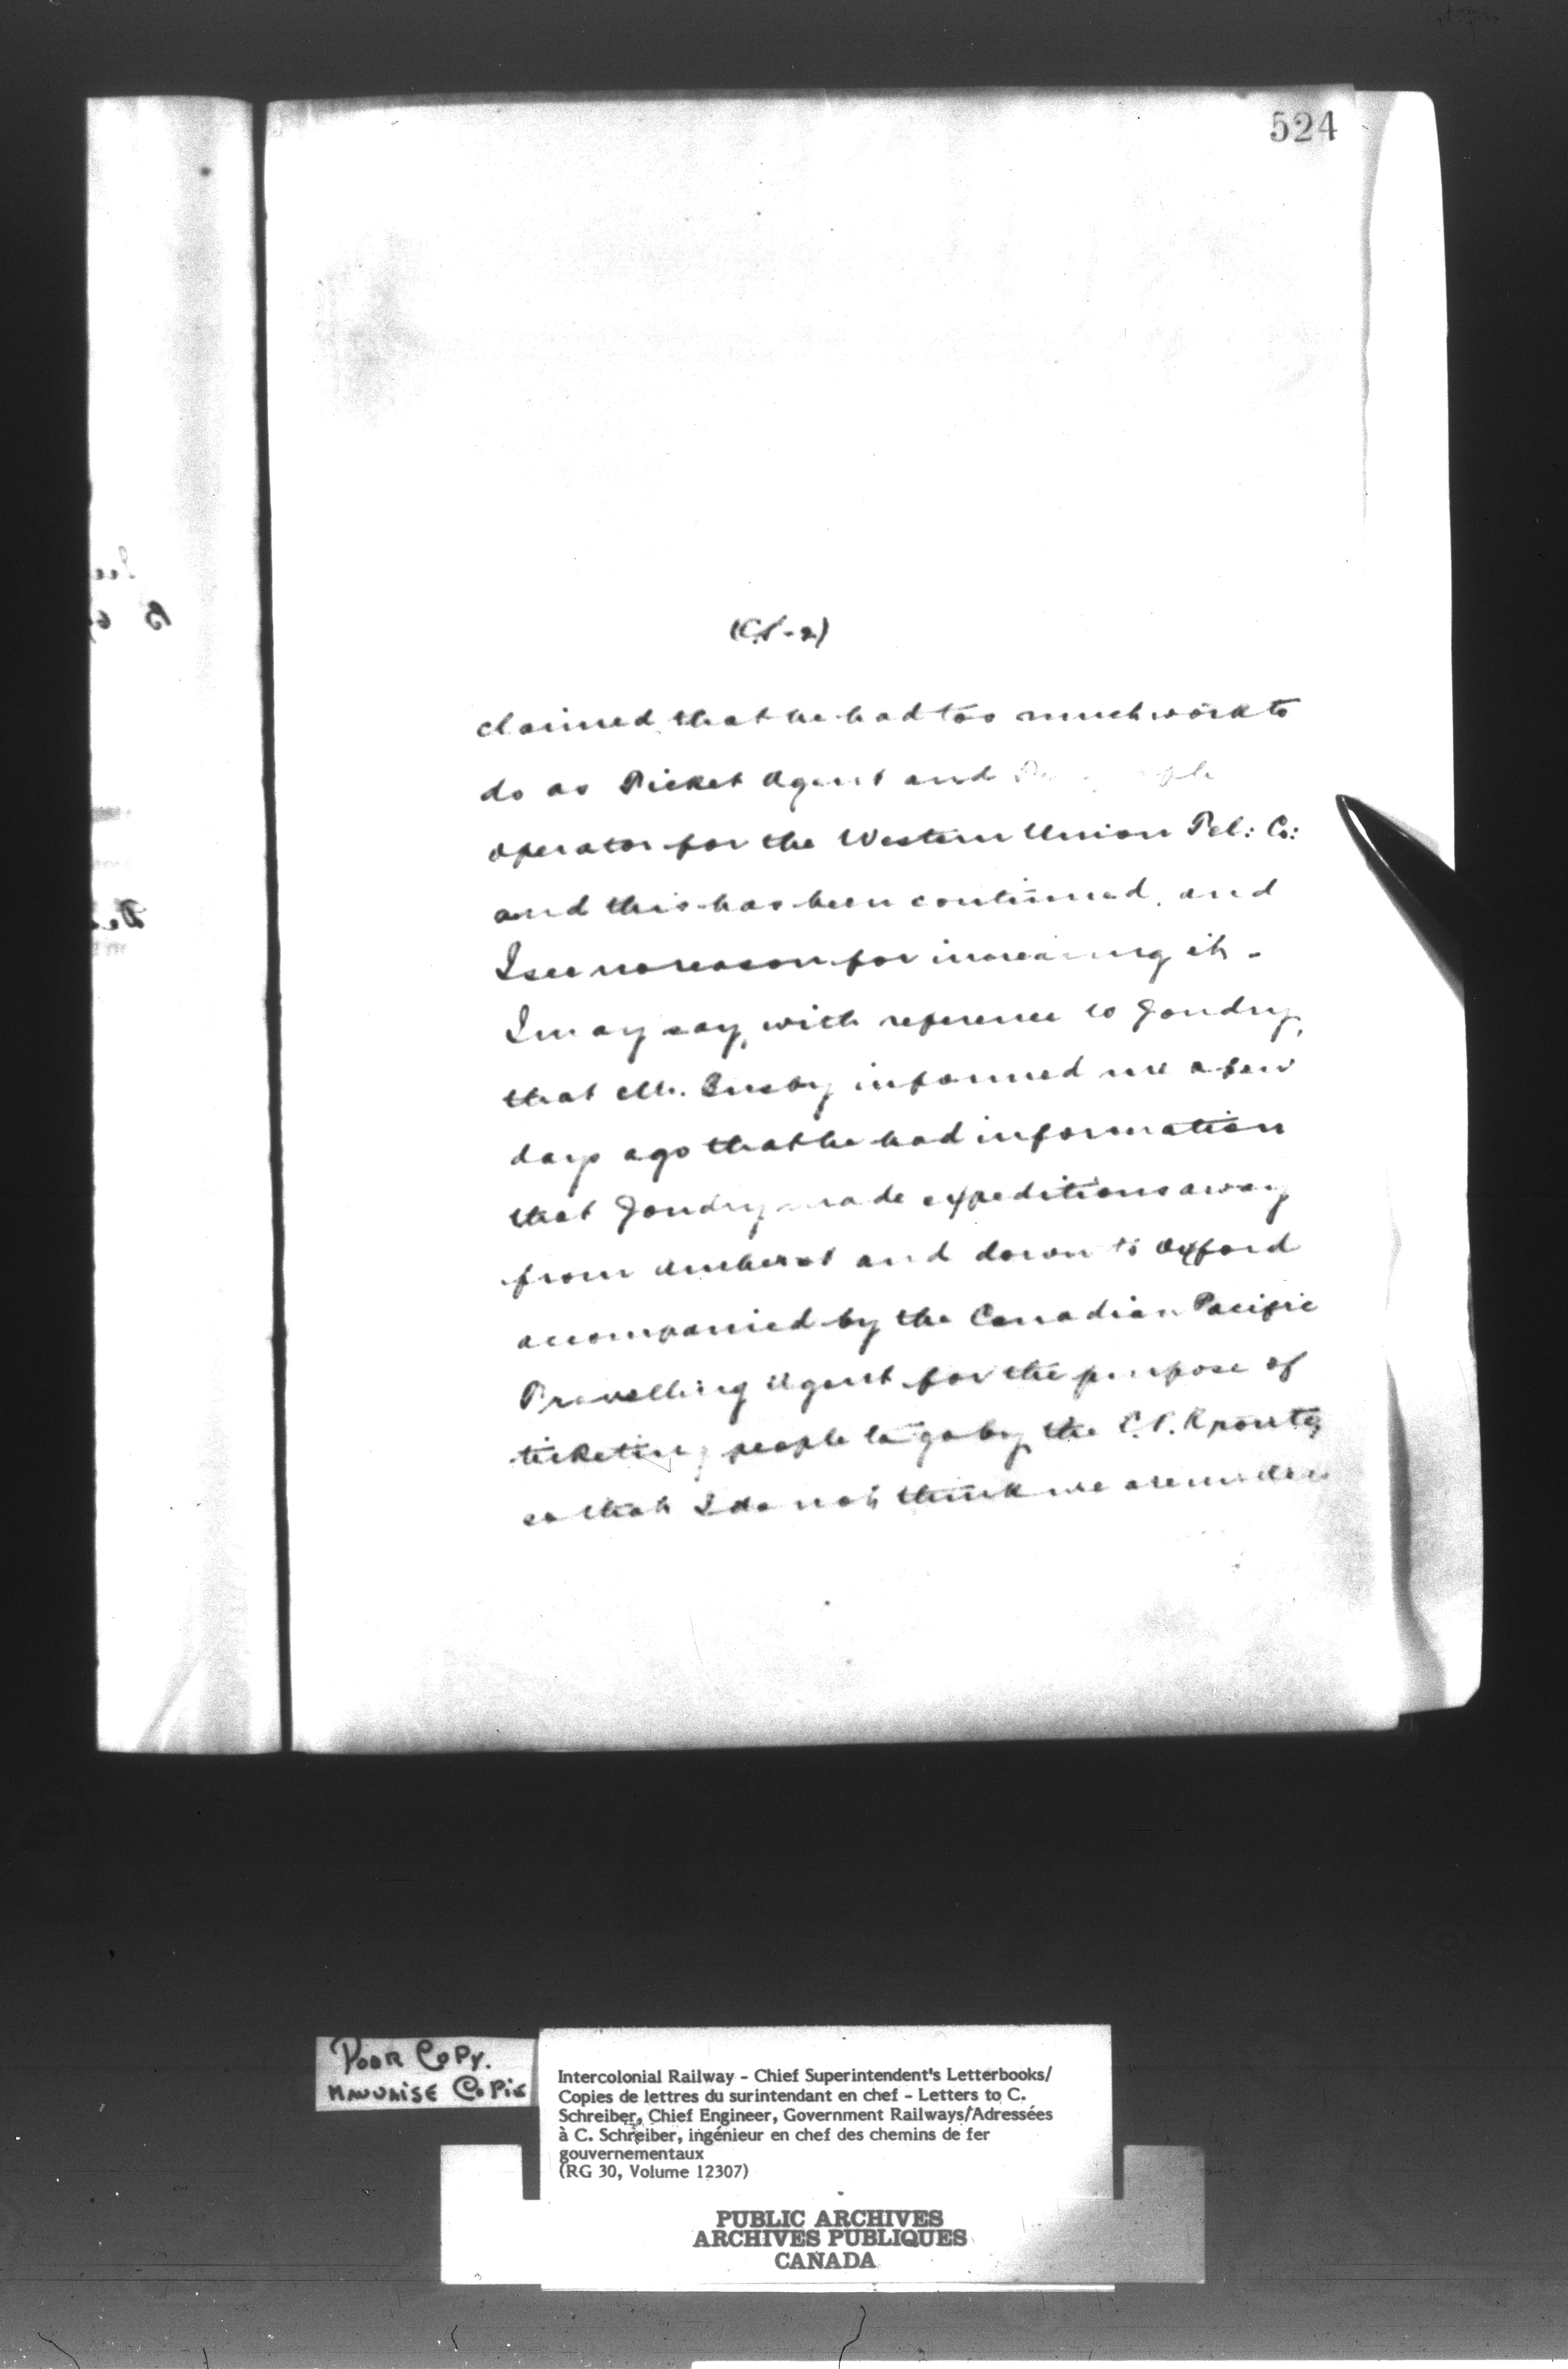 524
(CS-2)
claimed that he had too much work to
do as Ticket Agent and
operator for the Western Union Tel: Co:
and this has been continued, and
I see no reason for increasing it.
I may say, with reference to Gondry,
that Mr. Busby informed me a few
days ago that he had information
that Gondry made expeditions away
from Amherst and down to Oxford
accompanied by the Canadian Pacific
Travelling Agent for the purpose of
ticketing people to go by the C.P.R route,
so that I do not think we are under
POOR COPY.
MAUVAISE COPIE
Intercolonial Railway - Chief Superintendent's Letterbooks/
Copies de lettres du surintendant en chef - Letters to C.
Schreiber, Chief Engineer, Government Railways/Adressées
à C. Schreiber, ingénieur en chef des chemins de fer
gouvernementaux
(RG 30, Volume 12307)
PUBLIC ARCHIVES
ARCHIVES PUBLIQUES
CANADA